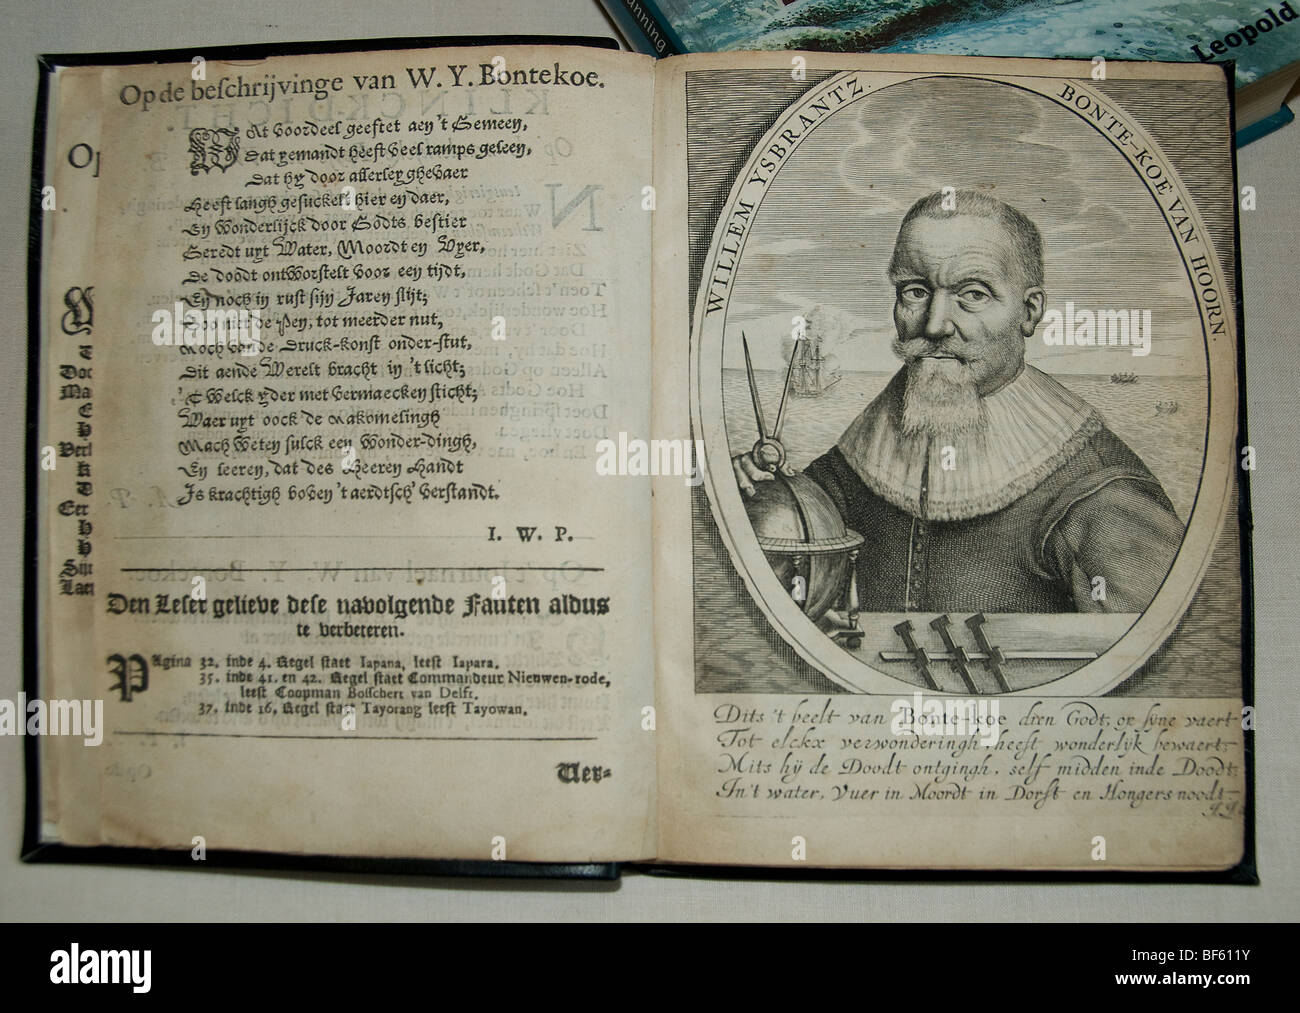 Leopold
Op de beſchrijvinge van W. Y. Bontekoe.
WAt voordeel geeftet aen 't Gemeen,
Dat yemandt heeft veel ramps geleen,
Dat hy door allerley ghevaer
Heeft langh gesuckelt hier en daer,
En wonderlijck door Godts bestier
Geredt uyt Water, Moordt en Vyer,
De doodt ontworstelt voor een tijdt,
En noch in rust sijn Jaren slijt;
Soo niet de Pen, tot meerder nut,
Noch van de Druck-konst onder-stut,
Dit aende Werelt bracht in 't licht;
'T Welck yder met vermaecken sticht;
Waer uyt oock de Nakomelingh
Mach weten sulck een Wonder-dingh,
En leeren, dat des Heeren Handt
Is krachtigh boven 't aerdtsch' verstandt.
I. W. P.
Den Leser gelieve dese navolgende Fauten aldus
te verbeteren.
PAgina 32. inde 4. Regel staet Iapana, leest Iapara.
35. inde 41. en 42. Regel staet Commandeur Nieuwen-rode,
leest Coopman Bosschert van Delft.
37. inde 16. Regel staet Tayorang leest Tayowan.
Ver-
WILLEM YSBRANTZ. BONTE-KOE VAN HOORN.
Dits 't beelt van Bonte-koe dien Godt, op syne vaert
Tot elckx verwonderingh, heeft wonderlyk bewaert;
Mits hij de Doodt ontgingh, self midden inde Doodt;
In 't water, Vuer in Moordt in Dorst en Hongers noodt
alamy
Image ID: BF611Y
www.alamy.com